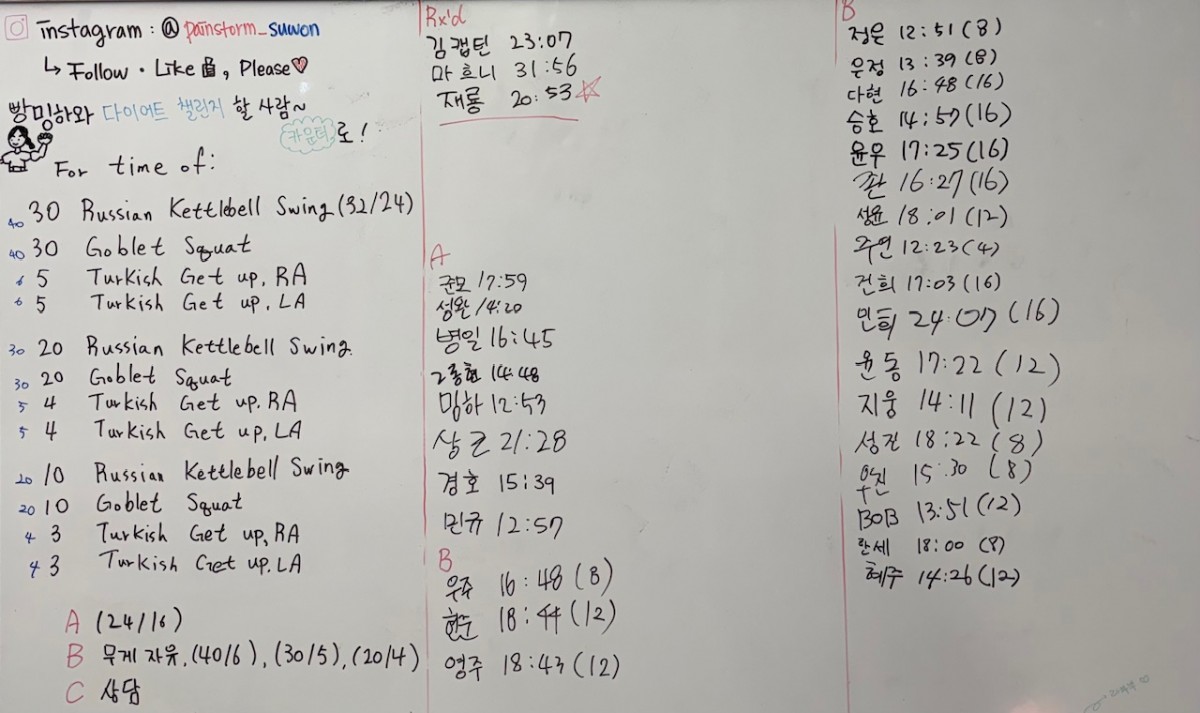 instagram : @painstorm_suwon
↳ Follow · Like 👍, Please♡
빵밍하와 다이어트 챌린지 할 사람~
카운터로!
For time of:
40 30 Russian Kettlebell Swing (32/24)
40 30 Goblet Squat
6 5 Turkish Get up, RA
6 5 Turkish Get up, LA
30 20 Russian Kettlebell Swing
30 20 Goblet Squat
5 4 Turkish Get up. RA
5 4 Turkish Get up, LA
20 10 Russian Kettlebell Swing
20 10 Goblet Squat
4 3 Turkish Get up, RA
4 3 Turkish Get up. LA
A (24/16)
B 무게 자유, (40/6), (30/5), (20/4)
C 상담
Rx'd
김캡틴 23:07
마흐니 31:56
재룡 20:53☆
A
군모 17:59
성완 14:20
병일 16:45
고종현 14:48
밍하 12:53
상근 21:28
경호 15:39
민규 12:57
B
우주 16:48 (8)
현준 18:44 (12)
영주 18:43 (12)
B
정은 12:51 (8)
은정 13:39 (8)
다현 16:48 (16)
승호 14:57 (16)
윤우 17:25 (16)
16:27 (16)
성윤 18:01 (12)
주연 12:23 (4)
건희 17:03 (16)
민희 24:07 (16)
윤동 17:22 (12)
지웅 14:11 (12)
성진 18:22 (8)
우진 15:30 (8)
BOB 13:51 (12)
란세 18:00 (8)
혜주 14:26 (12)